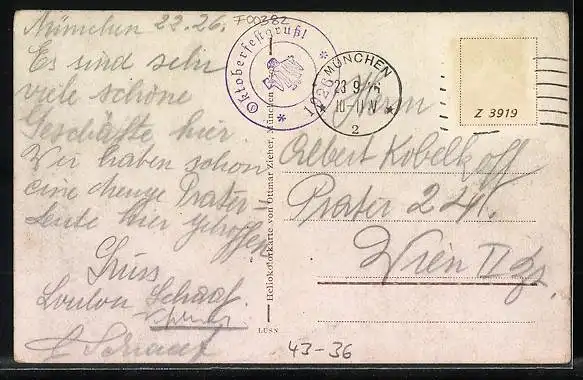 München 22.26.
F00382
Es sind sehr
viele schöne
Geschäfte hier.
Wir haben schon
eine Menge Prater-
Leute hier getroffen
Gruss
Schaaf.
Schaaf
Oktoberfestgruß!
* 1926 *
MÜNCHEN
23 9
10-11 V
* 2 *
Z 3919
Heliokolorkarte von Ottmar Zieher, München
LÜSN
Herrn
Albert Kobelkoff
Prater 241.
Wien II
43-36